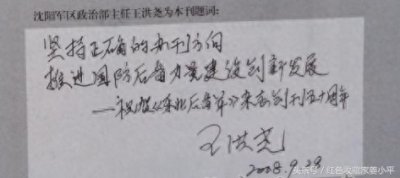 沈阳军区政治部主任王洪尧为本刊题词:
坚持正确的办刊方向
推进国防后备力量建设创新发展
——祝贺《东北后备军》杂志创刊五十周年
王洪尧
2008.9.28
头条号/红色收藏家姜小平